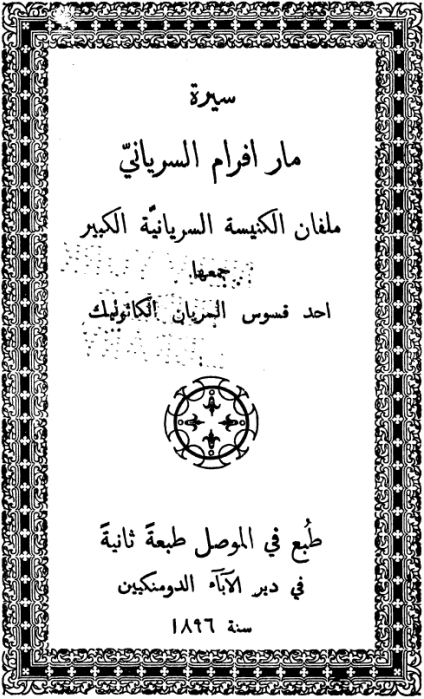 سيرة
مار افرام السريانيّ
ملفان الكنيسة السريانيَّة الكبير
جمعها
احد قسوس السريان الكاثوليك
طُبع في الموصل طبعةً ثانيةً
في دير الآبَآء الدومنكيين
سنة ١٨٩٦